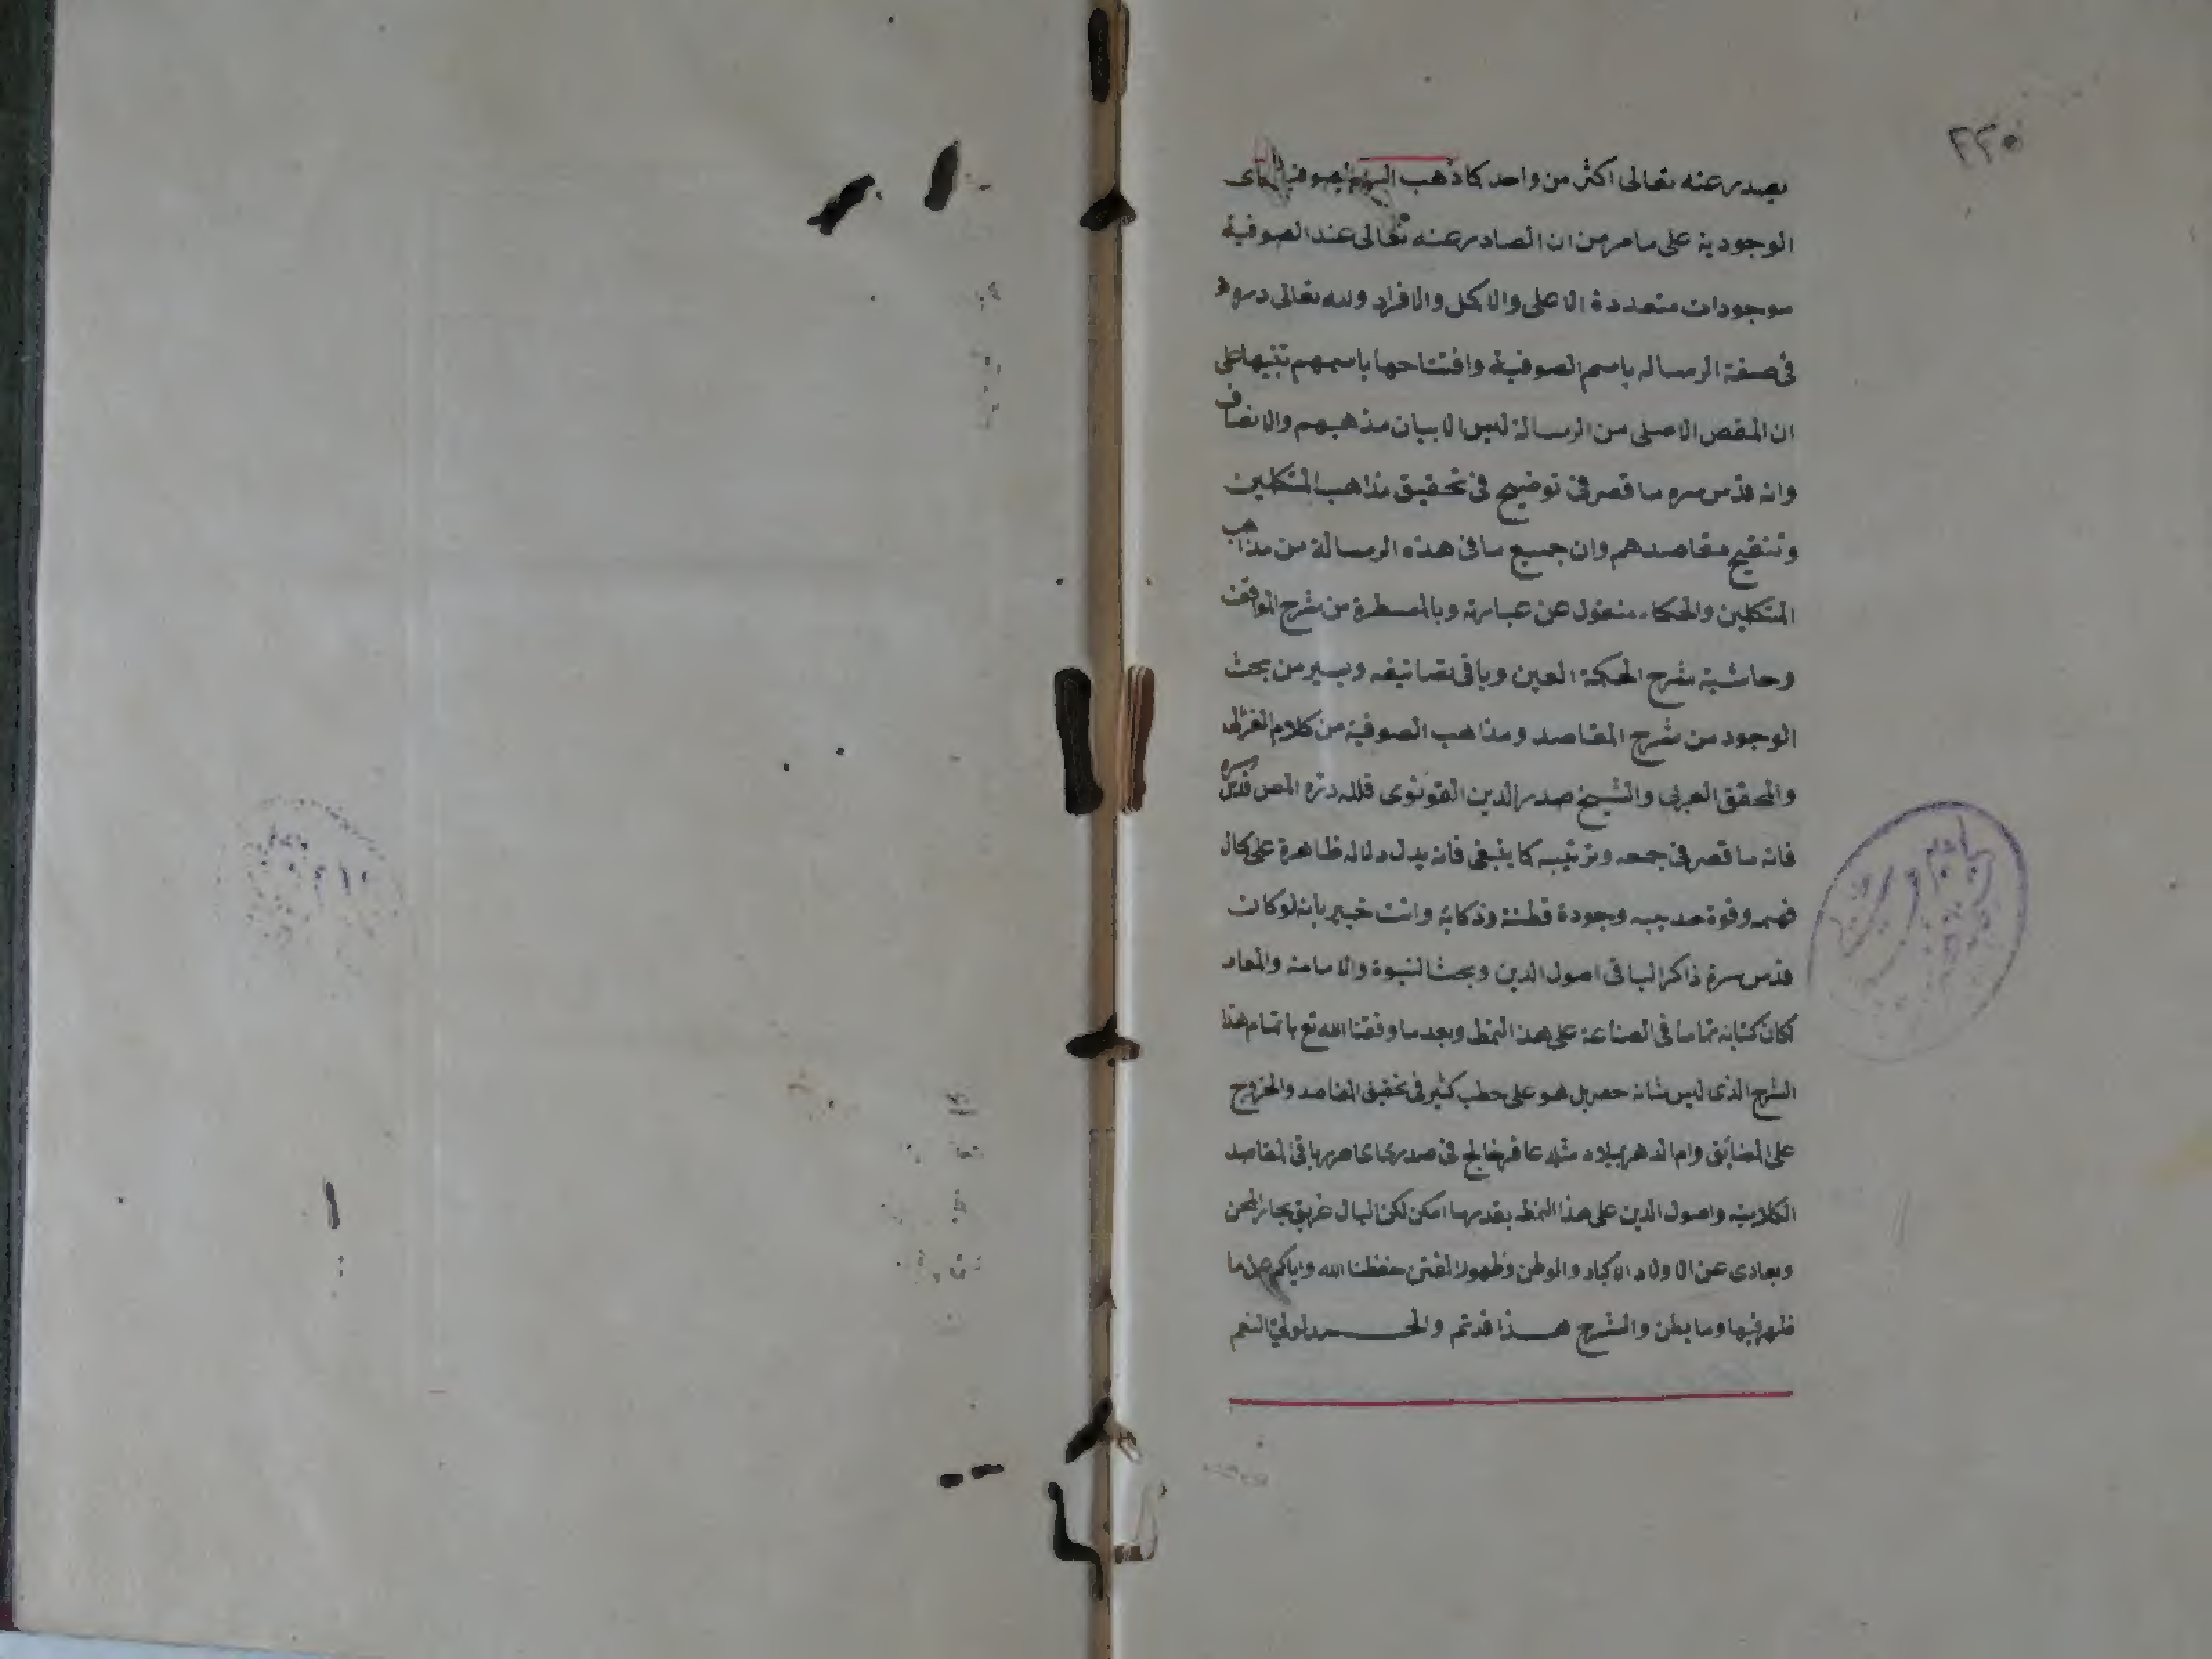 ٢٣٥
يصدر عنه تعالى اكثر من واحد كما ذهب اليه الصوفية
الوجودية على ما مر من ان الصادر عنه تعالى عند الصوفية
موجودات متعددة الاعلى والاكل والافراد ولله تعالى
فى صفة الرساله باسم الصوفية وافتتاحها باسمهم تنبيها على
ان المقص الاصلى من الرسالة ليس الا بيان مذهبهم والانصاف
وانه قدس سره ما قصر فى توضيح فى تحقيق مذاهب المتكلمين
وتنقيح مقاصدهم وان جميع ما فى هذه الرسالة من مذاهب
المتكلمين والحكماء منقول عن عبارته وبالمسطرة من شرح المواقف
وحاشية شرح الحكمة العين وباقى تصانيفه ويسير من بحث
الوجود من شرح المقاصد ومذاهب الصوفية من كلام الغزالى
والمحقق العربى والشيخ صدر الدين القونوى فلله دره المص قدس سره
فانه ما قصر فى جمعه وترتيبه كما ينبغى فانه يدل دلاله ظاهرة على كمال
فهمه وقوة حدسه وجودة فطنته وذكائه وانت خبير بانه لو كان
قدس سره ذاكرا لباقى اصول الدين وبحث النبوة والامامة والمعاد
لكان كتابه تماما فى الصناعة على هذا النمط وبعد ما وفقنا الله تع باتمام هذا
الشرح الذى ليس شانه حصر بل هو على حطب كثير فى تحقيق المقاصد والخروج
على المضائق وام الدهر بميلاد مثله عاقر خالج فى صدرى ان احرر باقى المقاصد
الكلامية واصول الدين على هذا النمط بقدر ما امكن لكن البال غريق بحار المحن
وبعادى عن الاولاد الاكباد والوطن وظهور الفتن حفظنا الله واياكم عن ما
ظهر فيها وما بطن والشرح هذا قد تم والحمد لولى النعم